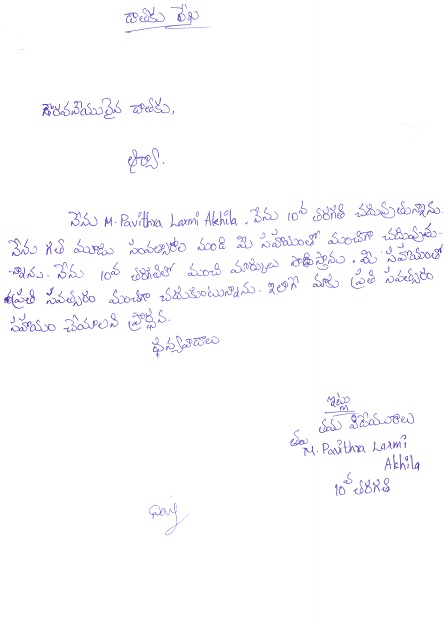 దాతకు లేఖ
గౌరవనీయులైన దాతకు,
నేను M. Pavithra Laxmi Akhila. నేను 10వ తరగతి చదువుతున్నాను.
నేను గత మూడు సంవత్సరాల నుండి మీ సహాయంతో మంచిగా చదువుతు-
న్నాను. నేను 10వ తరగతిలో మంచి మార్కులు సాధిస్తాను. మీ సహాయంతో
ప్రతి సంవత్సరం మంచిగా చదుకుంటున్నాను. ఇలాగే మాకు ప్రతి సంవత్సరం
సహాయం చేయాలని ప్రార్థన.
ధన్యవాదాలు
ఇట్లు
తమ విధేయురాలు
M. Pavithra Laxmi
Akhila
10వ తరగతి